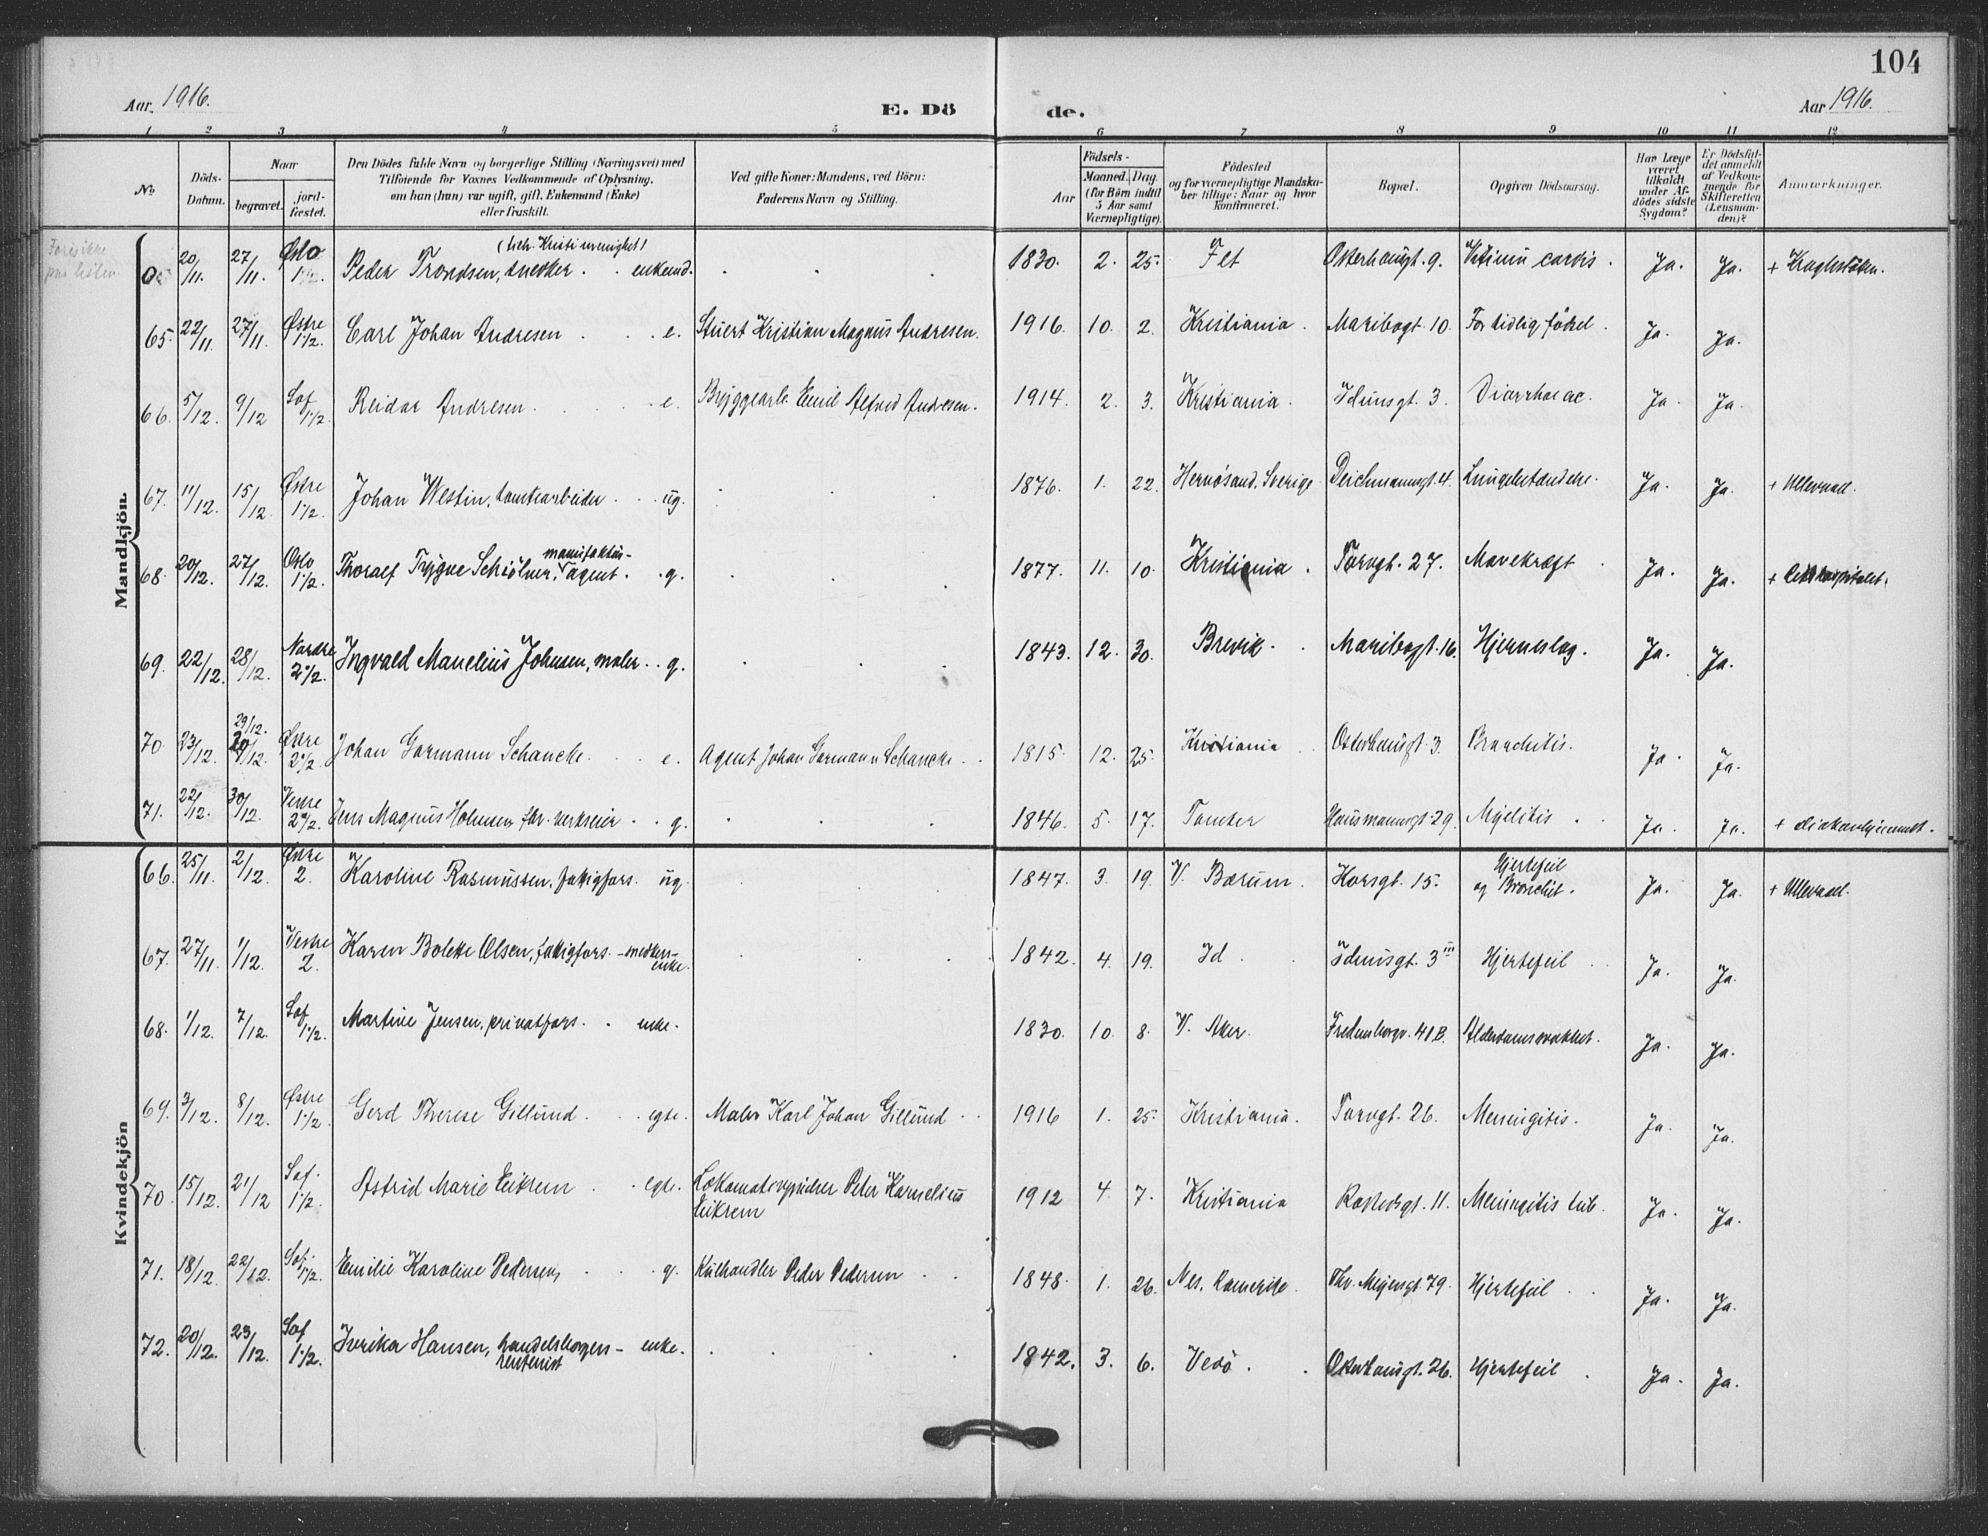 104
Aar 1916.
E. Döde.
Aar 1916.
1 2 3 4 5 6 7 8 9 10 11 12
No.
Döds-Datum.
Naar
begravet.
jordfæstet.
Den Dödes fulde Navn og borgerlige Stilling (Næringsvei) med
Tilföiende for Voxnes Vedkommende af Oplysning,
om han (hun) var ugift, gift, Enkemand (Enke)
eller fraskilt.
Ved gifte Koner: Mandens, ved Börn:
Faderens Navn og Stilling.
Födsels-
Aar
Maaned. Dag.
(for Börn indtil
5 Aar samt
Værnepligtige).
Födested
og for værnepligtige Mandskaber
tillige: Naar og hvor
konfirmeret.
Bopæl.
Opgiven Dödsaarsag.
Har Læge været tilkaldt under Afdödes sidste Sygdom?
Er Dödsfaldet anmeldt af Vedkommende for Skifteretten (Lensmanden)?
Anmærkninger.
Mandkjön.
20/11. 27/11. Oslo 1 1/2. Peder Trondsen, snedker . . enkemd. 1830. 2. 25. Fet Osterhausgt. 9. Ja. Ja. +
65. 22/11. 27/11. Østre 1 1/2. Carl Johan Andresen . . . e. Stuert Kristian Magnus Andresen. 1916. 10. 2. Kristiania. Maribogt. 10. For tidlig född. Ja. Ja.
66. 5/12. 9/12 Sof. 1 1/2. Reidar Andresen. . . e. Bryggearb. Emil Alfred Andresen. 1914. 2. 3. Kristiania. Idunsgt. 3. Diarrhoeac. Ja. Ja.
67. 11/12. 15/12. Østre 1 1/2. Johan Westin, tomtearbeider . . ug. 1876. 1. 22. Hernøsand, Sverige. Deichmannsgt. 4. Lungebetændelse. Ja. Ja. + Ullevaal.
68. 20/12. 27/12. Oslo 1 1/2. Thoralf Trygve Schiölner, manufaktur-agent. . g. 1877. 11. 10. Kristiania. Torvgt. 27. Mavekræft Ja. Ja. +
69. 22/12. 28/12. Nordre 2 1/2. Ingvald Manelius Johnsen, maler . . g. 1843. 12. 30. Brevik. Maribogt. 16. Hjerneslag. Ja. Ja.
70. 23/12. 29/12. Østre 2 1/2. Johan Garmann Schancke. . . e. Agent Johan Garmann Schancke. . 1815. 12. 25. Kristiania Osterhausgt. 3. Bronchitis. Ja. Ja.
71. 22/12. 30/12. Vestre 2 1/2. Jens Magnus Holmsen, fhv. verkseier . . g. 1846. 5. 17. Tomter Hausmannsgt. 29. Myelitis . Ja. Ja. + diakonhjemmet.
Kvindekjön
66. 25/11. 2/12. Østre 2. Karoline Rasmussen, fattigfors. ug. 1847. 3. 19. V. Bærum. Korsgt. 15. Hjertefeil og Bronchit. Ja. Ja. + Ullevaal.
67. 27/11. 1/12. Vestre 2. Karen Bolette Olsen, fattigfors. enke. 1842. 4. 19. Id . Idunsgt. 3 III Hjertefeil . Ja. Ja.
68. 1/12. 7/12. Sof. 1 1/2. Martine Jensen, privatfors. . enke. 1830. 10. 8. V. Aker. Fredensborgv. 41B. Alderdomssvakhet. Ja. Ja.
69. 3/12. 8/12. Østre 1 1/2. Gerd Therese Gillund . . egte. Maler Karl Johan Gillund . . 1916 1. 25. Kristiania. Torvgt. 26. Meningitis. Ja. Ja.
70. 15/12. 21/12 Sof. 1 1/2. Astrid Marie Eikrem . . egte. Lokomotivpudser Peter Kornelius Eikrem 1912 4. 7. Kristiania Rostedsgt. 11. Meningitis tub. Ja. Ja.
71. 18/12. 22/12. Sof. 1 1/2. Emilie Karoline Pedersen, . . g. Kulhandler Peder Pedersen . . 1848. 1. 26. Nes, Romerike. Thv. Meyersgt. 79. Hjertefeil . . Ja. Ja.
72. 20/12. 23/12. Sof. 1 1/2. Hansen, handelsborgers- enke. rentenist 1842. 3. 6. Vedö . . Osterhausgt. 26. Hjertefeil . Ja. Ja.